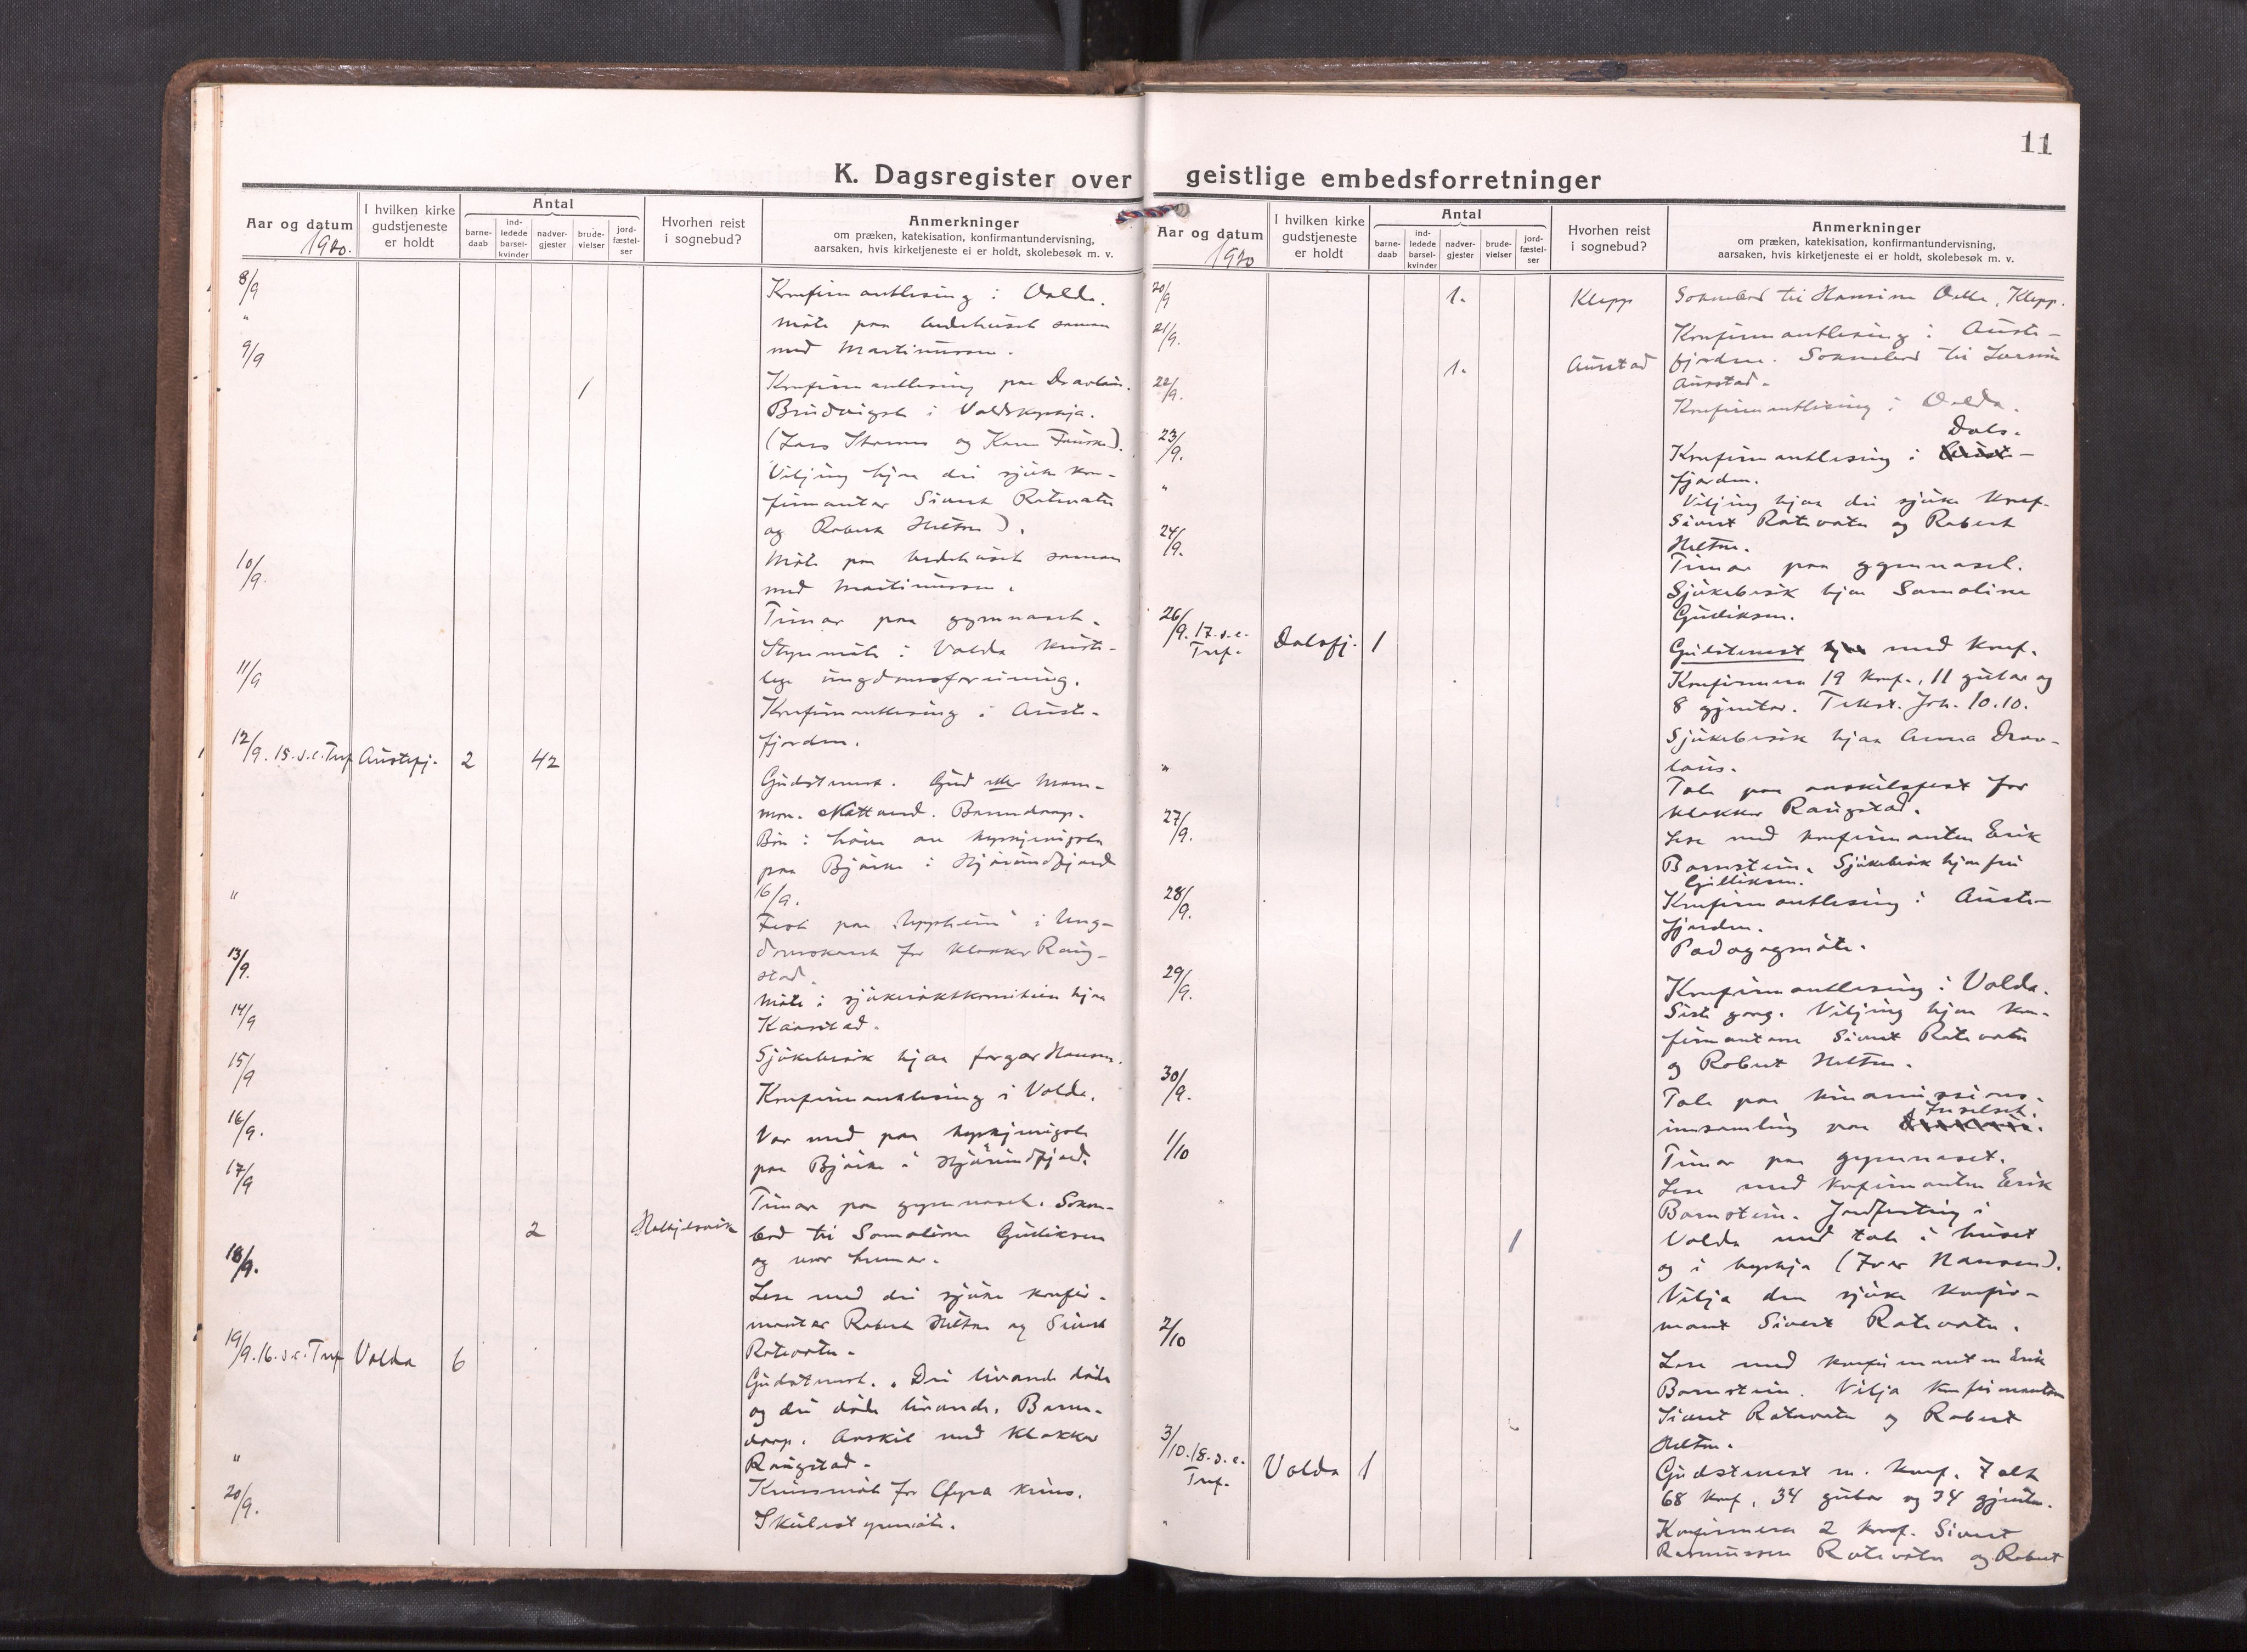 11
K. Dagsregister over geistlige embedsforretninger
Aar og datum
1920.
I hvilken kirke
gudstjeneste
er holdt
Antal
barne-
daab
ind-
ledede
barsel-
kvinder
nadver-
gjester
brude-
vielser
jord-
fæstel-
ser
Hvorhen reist
i sognebud?
Anmerkninger
om præken, katekisation, konfirmantundervisning,
aarsaken, hvis kirketjeneste ei er holdt, skolebesøk m. v.
8/9 Konfirmantlesing i Volda.
" Møte paa bedehuset saman
9/9 med Martinussen.
1 Konfirmantlesing paa Dravlaus.
Brudvigsle i Voldskyrkja.
(Lars og Fauske).
Vitjing hjaa dei sjuke kon-
firmantar Sivert Rotevatn
og Robert Heltne).
10/9. Møte paa bedehuset saman
med Martinussen.
Timar paa gymnaset.
Styremøte i Volda kriste-
lege ungdomsforeining.
11/9 Konfirmantlesing i Auste-
fjorden.
12/9. 15. s.e. Tref. Austefj. 2 42
Gudstenest. Gud eller Mam-
mon. Nattverd. Barnedaap.
Bøn i høve av kyrkjevigsla
paa Bjørke i Hjørundfjord
16/9.
" Fest paa "Uppheim" i Ung-
domskaret for klokkar Raug-
stad.
13/9. Møte i sjukerøktkomiteen hjaa
Kaarstad.
14/9 Sjukebesøk hjaa fargar Hansen.
15/9 Konfirmantlesing i Volda.
16/9. Var med paa kyrkjevigsle
paa Bjørke i Hjørundfjord.
17/9 Timar paa gymnaset. Sokne-
2 Halkjelsvik bod til Samoline Gudiksen
og mor hennar.
18/9. Lese med dei sjuke konfir-
mantar Robert Heltne og Sivert
Rotevatn.
19/9. 16. s.e. Tref. Volda 6
Gudstenest. "Dei livande døde
og dei døde livande. Barne-
daap. Avskil med klokkar
Raugstad.
" Krinsmøte for Øyra krins.
20/9. Skulestyremøte.
Aar og datum
1920
I hvilken kirke
gudstjeneste
er holdt
Antal
barne-
daab
ind-
ledede
barsel-
kvinder
nadver-
gjester
brude-
vielser
jord-
fæstel-
ser
Hvorhen reist
i sognebud?
Anmerkninger
om præken, katekisation, konfirmantundervisning,
aarsaken, hvis kirketjeneste ei er holdt, skolebesøk m. v.
20/9 1. Klepp Soknebod til Hansine Klepp.
21/9. Konfirmantlesing i Auste-
1. Aurstad fjorden. Soknebod til
22/9. Aurstad.
Konfirmantlesing i Volda.
23/9. Dals.
Konfirmantlesing i
fjorden.
" Vitjing hjaa dei sjuke konf.
Sivert Rotevatn og Robert
24/9. Heltne.
Timar paa gymnaset.
Sjukebesøk hjaa Samoline
Gudiksen.
26/9. 17. s.e. Tref. Dalsfj. 1
Gudstenest med konf.
Konfirmera 19 konf., 11 gutar og
8 gjentor. Tekst. Joh. 10.10.
Sjukebesøk hjaa Anna Drav-
laus.
" Tale paa avskilsfest for
klokkar Raugstad.
27/9. Lese med konfirmanten Erik
Barnstein. Sjukebesøk hjaa fru
Gudiksen.
28/9. Konfirmantlesing i Auste-
fjorden.
Pedagogmøte.
29/9. Konfirmantlesing i Volda.
Siste gong. Vitjing hjaa kon-
firmantane Sivert Rotevatn
og Robert Heltne.
30/9. Tale paa kinamissions-
innsamling paa Furelset.
1/10 Timar paa gymnaset.
Lese med konfirmanten Erik
Barnstein. Jordfesting i
1 Volda med tale i huset
og i kyrkja (Ivar Hansen).
Vitja den sjuke konfir-
mant Sivert Rotevatn.
2/10 Lese med konfirmanten Erik
Barnstein. Vitja konfirmantane
Sivert Rotevatn og Robert
Heltne.
3/10. 18. s.e. Tref. Volda 1
Gudstenest m. konf. I alt
68 konf., 34 gutar og 34 gjentor.
" Konfirmera 2 konf. Sivert
Rasmussen Rotevatn og Robert